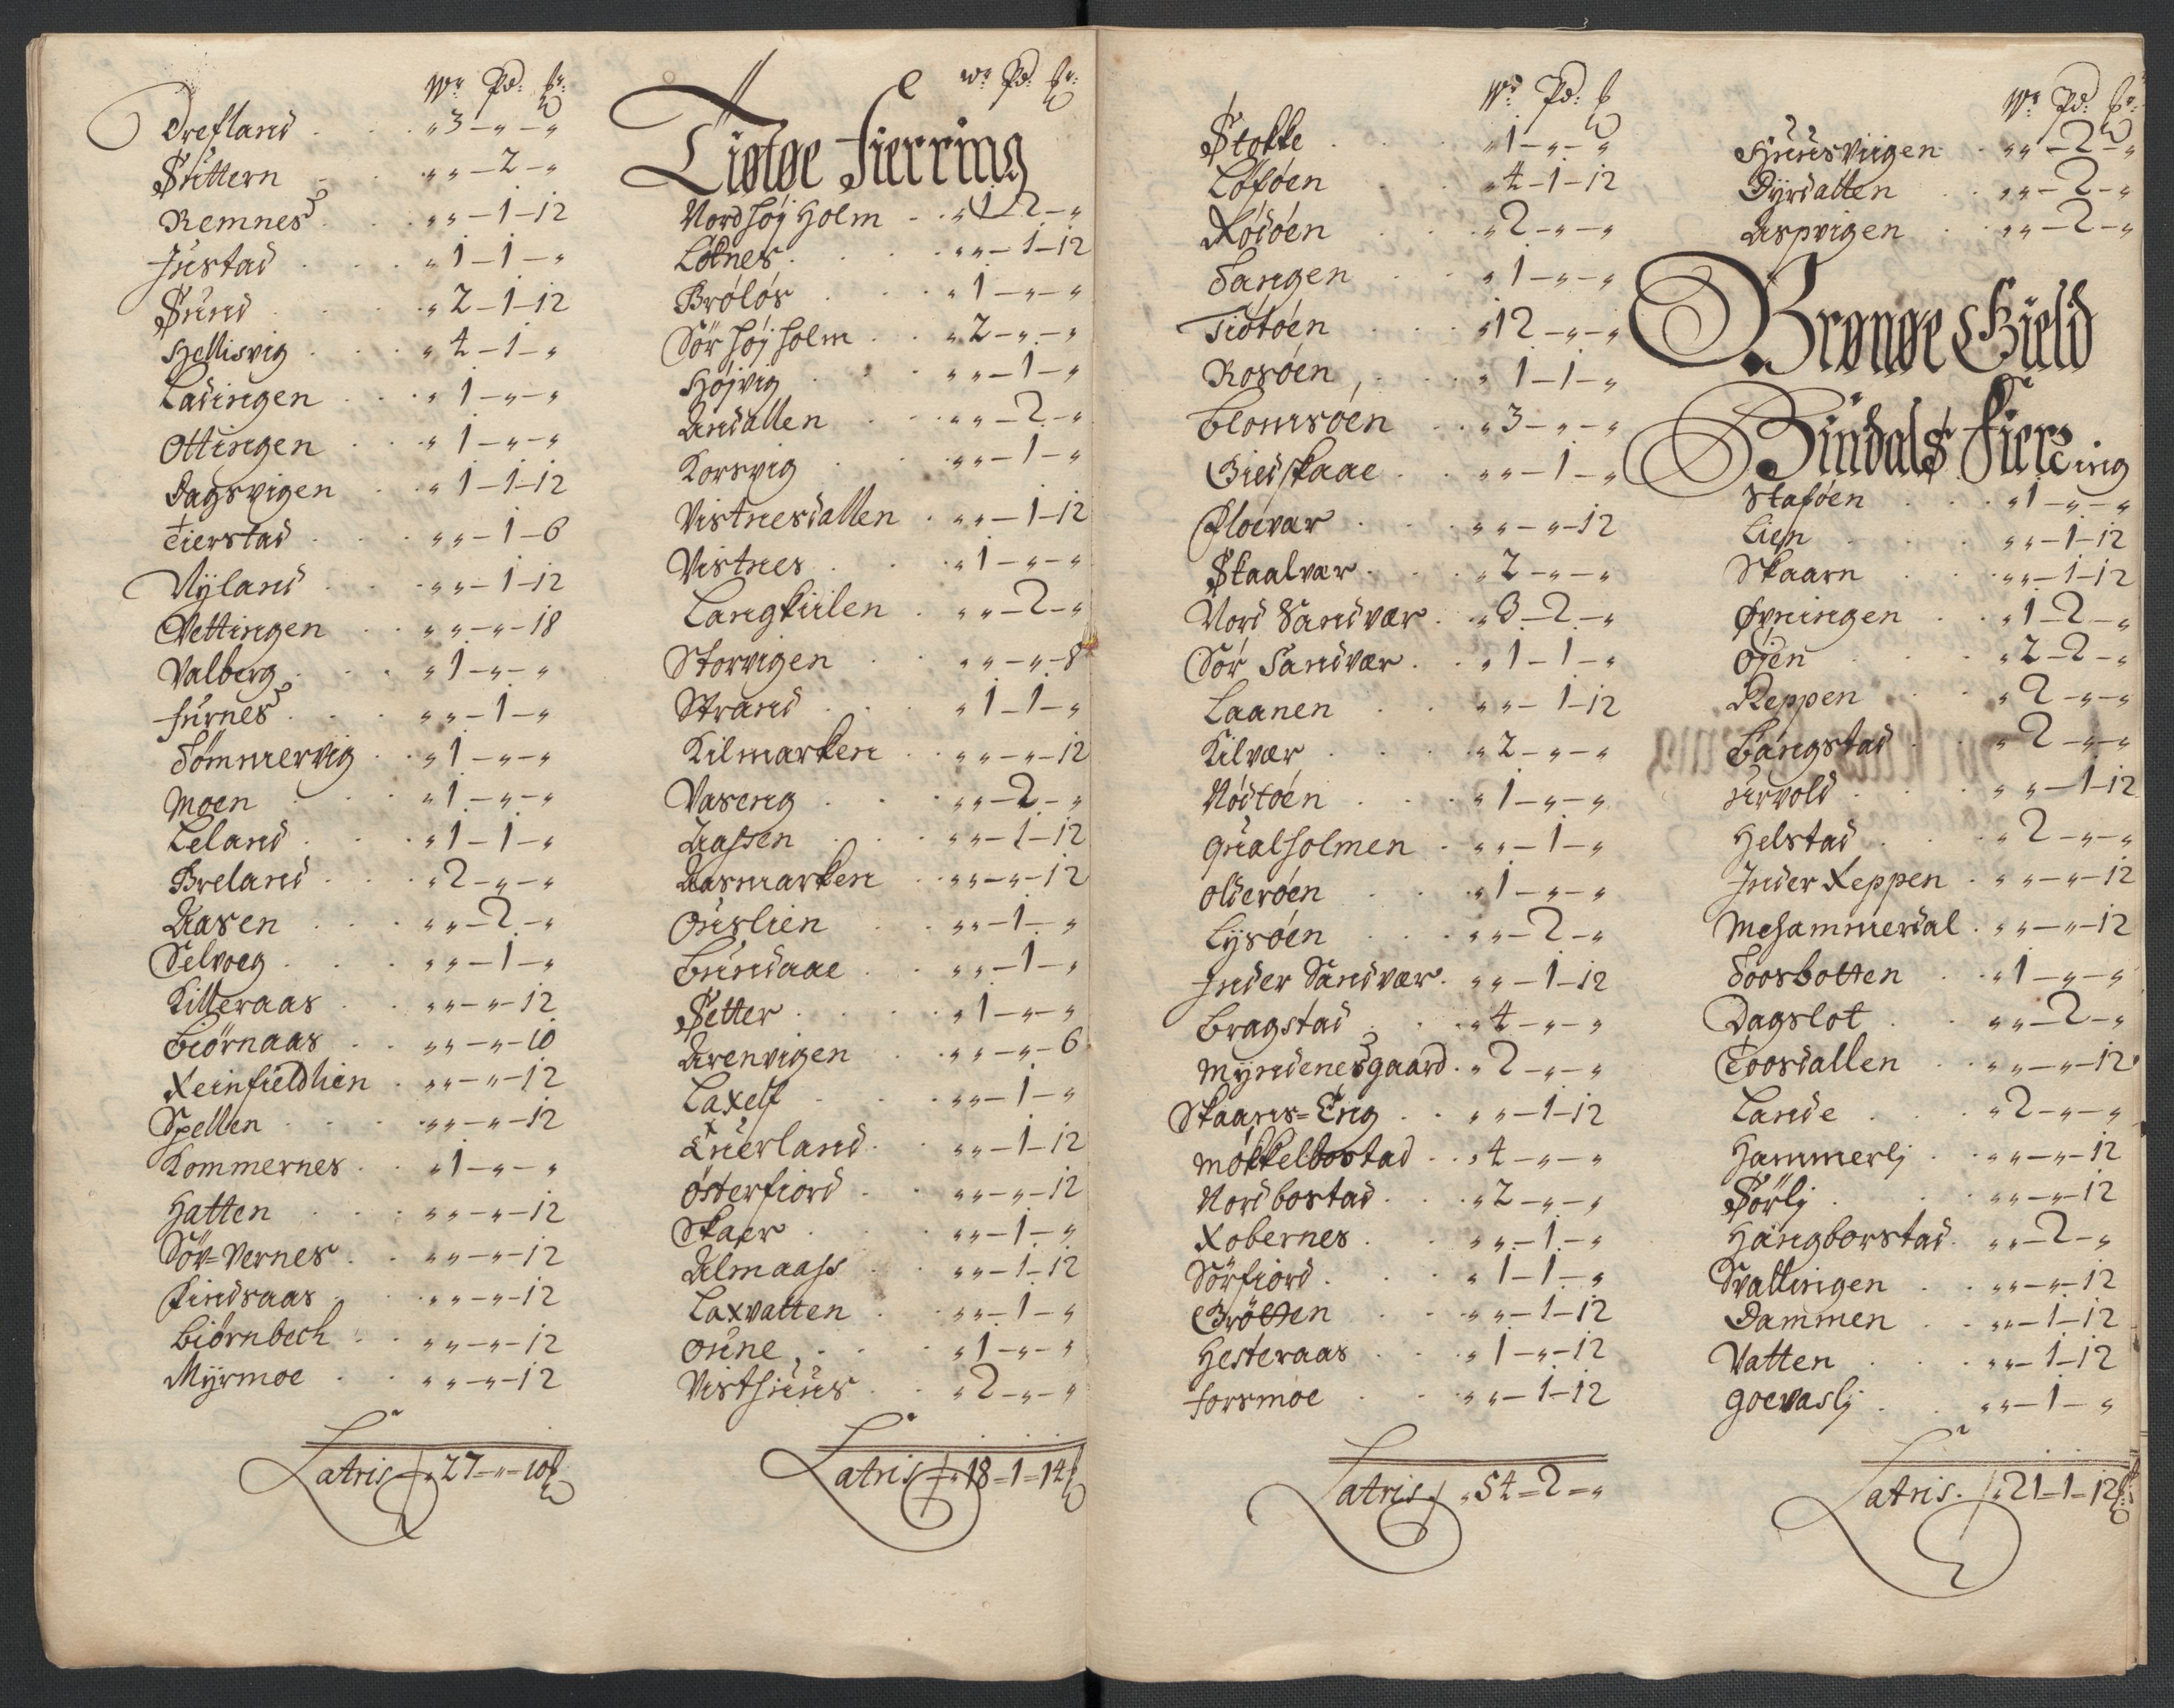 Wr Pd: lb:
Drefland . . . „3 – „ – „
Suttern . . „ „ – 2 – „
Remnes . . „ „ – 1 – 12
Justad . . . „ 1 – 1 – „
Sund . . . „ 2 – 1 – 12
Hellisvig . . . „ 4 – 1 – „
Ladingen . . . „ 1 – „ – „
Ottingen . . . „ 1 – „ – „
Dagsvigen . . „ 1 – 1 – 12
Tierstad . . . „ „ – 1 – 6
Nÿland . . . „ „ – 1 – 12
Vettingen . . „ „ – „ – 18
Valberg . . . „ 1 – „ – „
Furnes . . . „ „ – 1 – „
Sömmervig . . „ 1 – „ – „
Moen . . . „ 1 – „ – „
Leland . . . „ 1 – 1 – „
Breland . . . „ 2 – „ – „
Aasen . . . „ „ – 2 – „
Selvoeg . . . „ „ – 1 – „
Killeraas . . „ „ – „ – 12
Biörnaas . . „ „ – „ – 10
Reinfieldlien . „ „ – „ – 12
Spellen . . . „ „ – „ – 12
Kommernes . . „ 1 – „ – „
Hatten . . . „ „ – „ – 12
Söv=Vernes . . „ „ – „ – 12
Findsaas . . „ „ – „ – 12
Biörnbech . . „ „ – „ – 12
Mÿrmoe . . „ „ – „ – 12
Latris „ 27 = „ = 10 lb
Wr Pd: lb:
Tiøtøe Fierring
Nordhöj Holm . . „ 1 – 2 – „
Lötnes . . . „ „ – 1 – 12
Brölös . . . „ 1 – „ – „
Sör höj holm . . „ 2 – „ – „
Höjvig . . . „ „ – 1 – „
Andallen . . „ „ – 2 – „
Korsvig . . . „ „ – 1 – „
Vistnesdallen . „ „ – 1 – 12
Vistnes . . . „ 1 – „ – „
Langkiilen . „ „ – 2 – „
Storvigen . . „ „ – „ – 8
Strand . . . „ 1 – 1 – „
Kilmarken . . „ „ – „ – 12
Vaseng . . . „ „ – 2 – „
Aassen . . . „ „ – 1 – 12
Aasmarken . . „ „ – „ – 12
Ouslien . . „ „ – 1 – „
Bundaae . . „ „ – 1 – „
Setter . . . „ 1 – „ – „
Arenvigen . . „ „ – „ – 6
Laxelf . . . „ „ – 1 – „
Luerland . . „ „ – 1 – 12
Österfiord . . „ „ – „ – 12
Skaer . . . „ „ – 1 – „
Almaass . . „ „ – 1 – 12
Laxvatten . . „ „ – 1 – „
Oune . . . „ 1 – „ – „
Visthuus . . „ 2 – „ – „
Latris „ 18 – 1 = 14 lb
Wr: Pd: lb
Stokke . . . „ 1 – „ – „
Löföen . . „ 4 – 1 – 12
Rödöen . . . „ 2 – „ – „
Tangen . . . „ 1 – „ – „
Tiötöen . . . „ 12 – „ – „
Rosöen . . . „ 1 – 1 – „
Blomsöen . . „ 3 – „ – „
Giedskaae . . „ „ – 1 – „
Floevær . . . „ „ – „ – 12
Skaalvær . . . „ 2 – „ – „
Nord Sandvær . „ 3 – 2 – „
Sör Sandvær . . „ 1 – 1 – „
Laanen . . „ „ – 1 – 12
Kilvær . . . „ 2 – „ – „
Nöstöen . . . „ 1 – „ – „
Qualholmen . „ „ – 1 – „
Olderöen . . „ 1 – „ – „
Lÿsöen . . . „ „ – 2 – „
Inder Sandvær . „ „ – 1 – 12
Bragstad . . „ 4 – „ – „
Myndenesgaard . „ 2 – „ – „
Skaans=Eng . . „ „ – 1 – 12
Møkkelbostad . . „ 4 – „ – „
Nordbostad . . „ 2 – „ – „
Robernes . . „ „ – 1 – „
Sörfiord . . . „ 1 – 1 – „
Grötten . . „ „ – 1 – 12
Hesteraas . . „ 1 – „ – 12
Forsmoe . . „ „ – 1 – 12
Latris „ 54 = 2 = „
Wr Pd: lb:
Huusviigen . „ „ – 2 – „
Dyrdallen . „ „ – 2 – „
Aspvigen . . „ „ – 2 – „
Brønøe Gield
Bindals Fierring
Staföen . . . „ 1 – „ – „
Lien . . . „ „ – 1 – 12
Skaarn . . „ „ – 1 – 12
Øvningen . . „ 1 – 2 – „
Öjen . . . „ 2 – 2 – „
Reppen . . . „ 2 – „ – „
Bangstad . . „ 2 – „ – „
Urvold . . . „ „ – 1 – 12
Helstad . . . „ 2 – „ – „
Inder Reppen . „ „ – „ – 12
Mehammerdal . „ „ – „ – 12
Toosbotten . . „ 1 – „ – „
Dagslot . . „ „ – 2 – „
Toosdallen . . „ „ – „ – 12
Lande . . . „ 2 – „ – „
Hammerlj . . „ „ – „ – 12
Sörlj . . . „ „ – „ – 12
Hangborstad . „ „ – 2 – „
Svallingen . . „ „ – „ – 12
Dammen . . „ „ – 1 – 12
Vatten . . . „ „ – 1 – 12
Goevaslj . . „ „ – 1 – „
Latris. „ 21 – 1 = 12 lb: